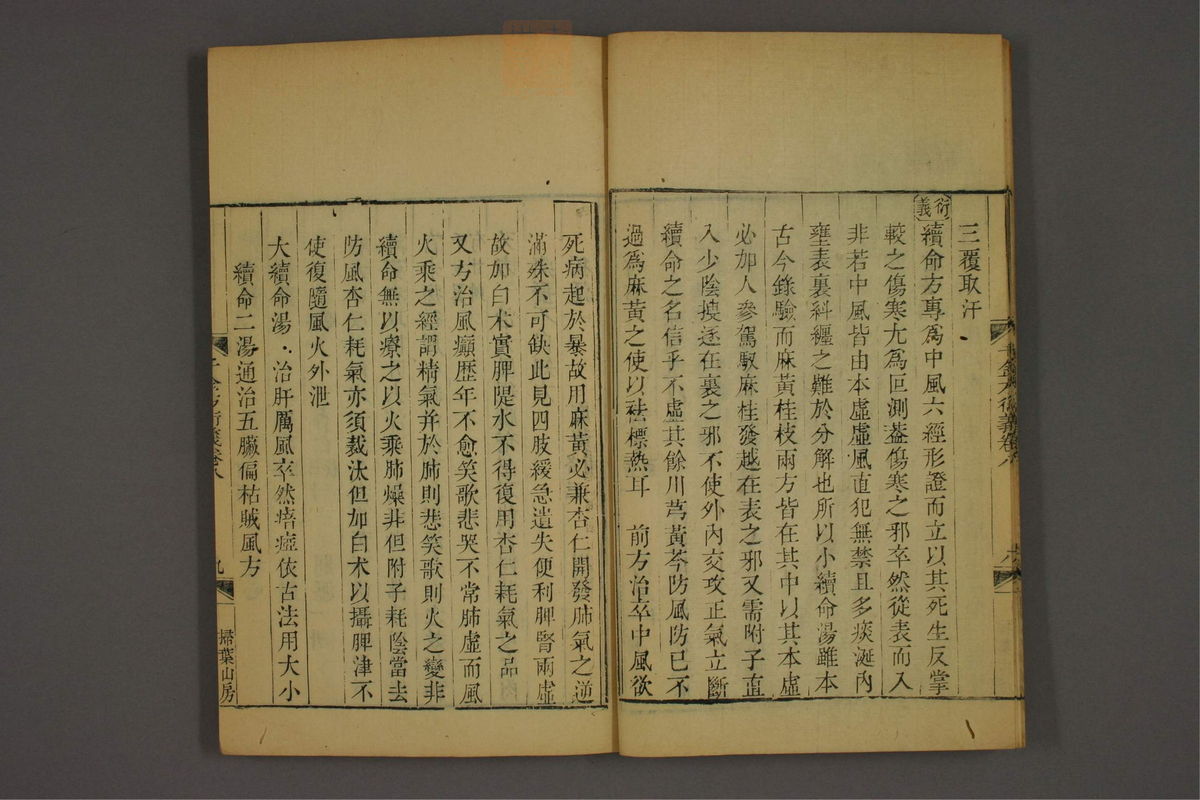 三覆取汗
衍義
續命方專爲中風六經形證而立以其死生反掌
較之傷寒尤爲叵測蓋傷寒之邪卒然從表而入
非若中風皆由本虛虛風直犯無禁且多痰涎內
壅表裏糾纏之難於分解也所以小續命湯雖本
古今錄驗而麻黃桂枝兩方皆在其中以其本虛
必加人參駕馭麻桂發越在表之邪又需附子直
入少陰搜逐在裏之邪不使外內交攻正氣立斷
續命之名信乎不虛其餘川芎黃芩防風防已不
過爲麻黃之使以祛標熱耳　前方治卒中風欲
死病起於暴故用麻黃必兼杏仁開發肺氣之逆
滿殊不可缺此見四肢緩急遺失便利脾腎兩虛
故加白术實脾隄水不得復用杏仁耗氣之品
又方治風癲歷年不愈笑歌悲哭不常肺虛而風
火乘之經謂精氣并於肺則悲笑歌則火之變非
續命無以療之以火乘肺燥非但附子耗陰當去
防風杏仁耗氣亦須裁汰但加白术以攝脾津不
使復隨風火外泄
大續命湯．治肝厲風卒然瘖瘂依古法用大小
續命二湯通治五臟偏枯賊風方
九
掃葉山房